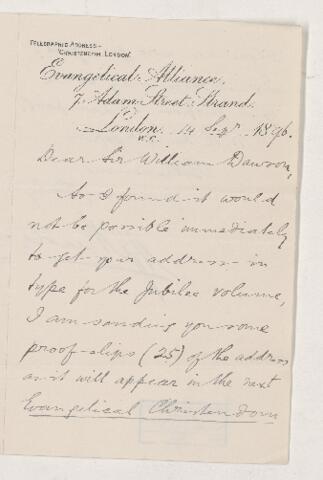 TELEGRAPHIC ADDRESS-
"CHRISTENDOM, LONDON"
Evangelical Alliance,
7, Adam Street, Strand,
London, 14 Sepr. 1896.
W.C.
Dear Sir William Dawson,
As I found it would
not be possible immediately
to get your address in
type for the Jubilee volume,
I am sending you some
proof-slips (25) of the address
as it will appear in the next
Evangelical Christendom